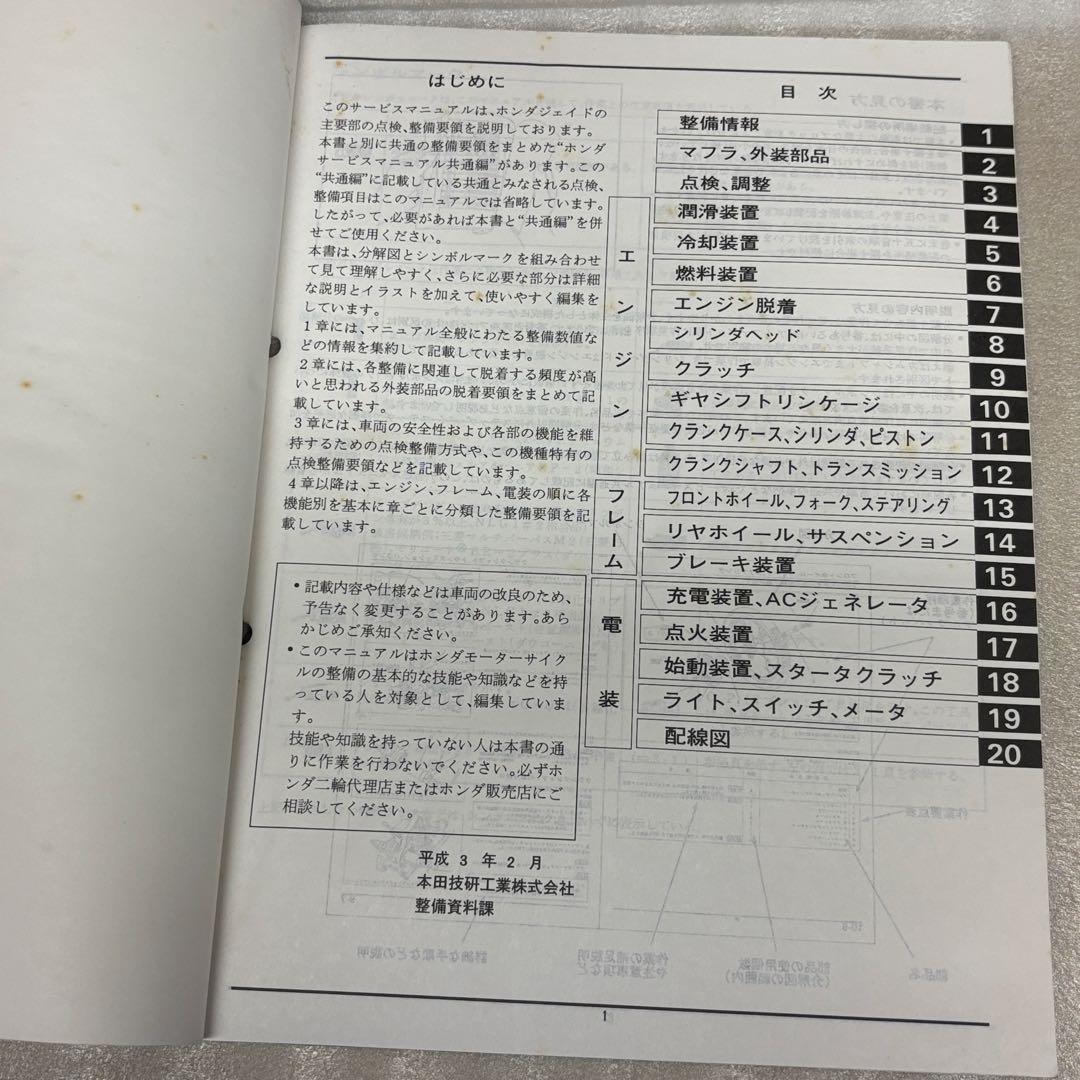 はじめに
このサービスマニュアルは、ホンダジェイドの
主要部の点検、整備要領を説明しております。
本書と別に共通の整備要領をまとめた“ホンダ
サービスマニュアル共通編”があります。この
“共通編”に記載している共通とみなされる点検、
整備項目はこのマニュアルでは省略しています。
したがって、必要があれば本書と“共通編”を併
せてご使用ください。
本書は、分解図とシンボルマークを組み合わせ
て見て理解しやすく、さらに必要な部分は詳細
な説明とイラストを加えて、使いやすく編集を
しています。
1章には、マニュアル全般にわたる整備数値な
どの情報を集約して記載しています。
2章には、各整備に関連して脱着する頻度が高
いと思われる外装部品の脱着要領をまとめて記
載しています。
3章には、車両の安全性および各部の機能を維
持するための点検整備方式や、この機種特有の
点検整備要領などを記載しています。
4章以降は、エンジン、フレーム、電装の順に各
機能別を基本に章ごとに分類した整備要領を記
載しています。
• 記載内容や仕様などは車両の改良のため、
予告なく変更することがあります。あら
かじめご承知ください。
• このマニュアルはホンダモーターサイク
ルの整備の基本的な技能や知識などを持
っている人を対象として、編集していま
す。
技能や知識を持っていない人は本書の通
りに作業を行わないでください。必ずホ
ンダ二輪代理店またはホンダ販売店にご
相談してください。
平成 3 年 2 月
本田技研工業株式会社
整備資料課
目 次
整備情報 1
マフラ、外装部品 2
点検、調整 3
エンジン
潤滑装置 4
冷却装置 5
燃料装置 6
エンジン脱着 7
シリンダヘッド 8
クラッチ 9
ギヤシフトリンケージ 10
クランクケース、シリンダ、ピストン 11
クランクシャフト、トランスミッション 12
フレーム
フロントホイール、フォーク、ステアリング 13
リヤホイール、サスペンション 14
ブレーキ装置 15
電装
充電装置、ACジェネレータ 16
点火装置 17
始動装置、スタータクラッチ 18
ライト、スイッチ、メータ 19
配線図 20
1